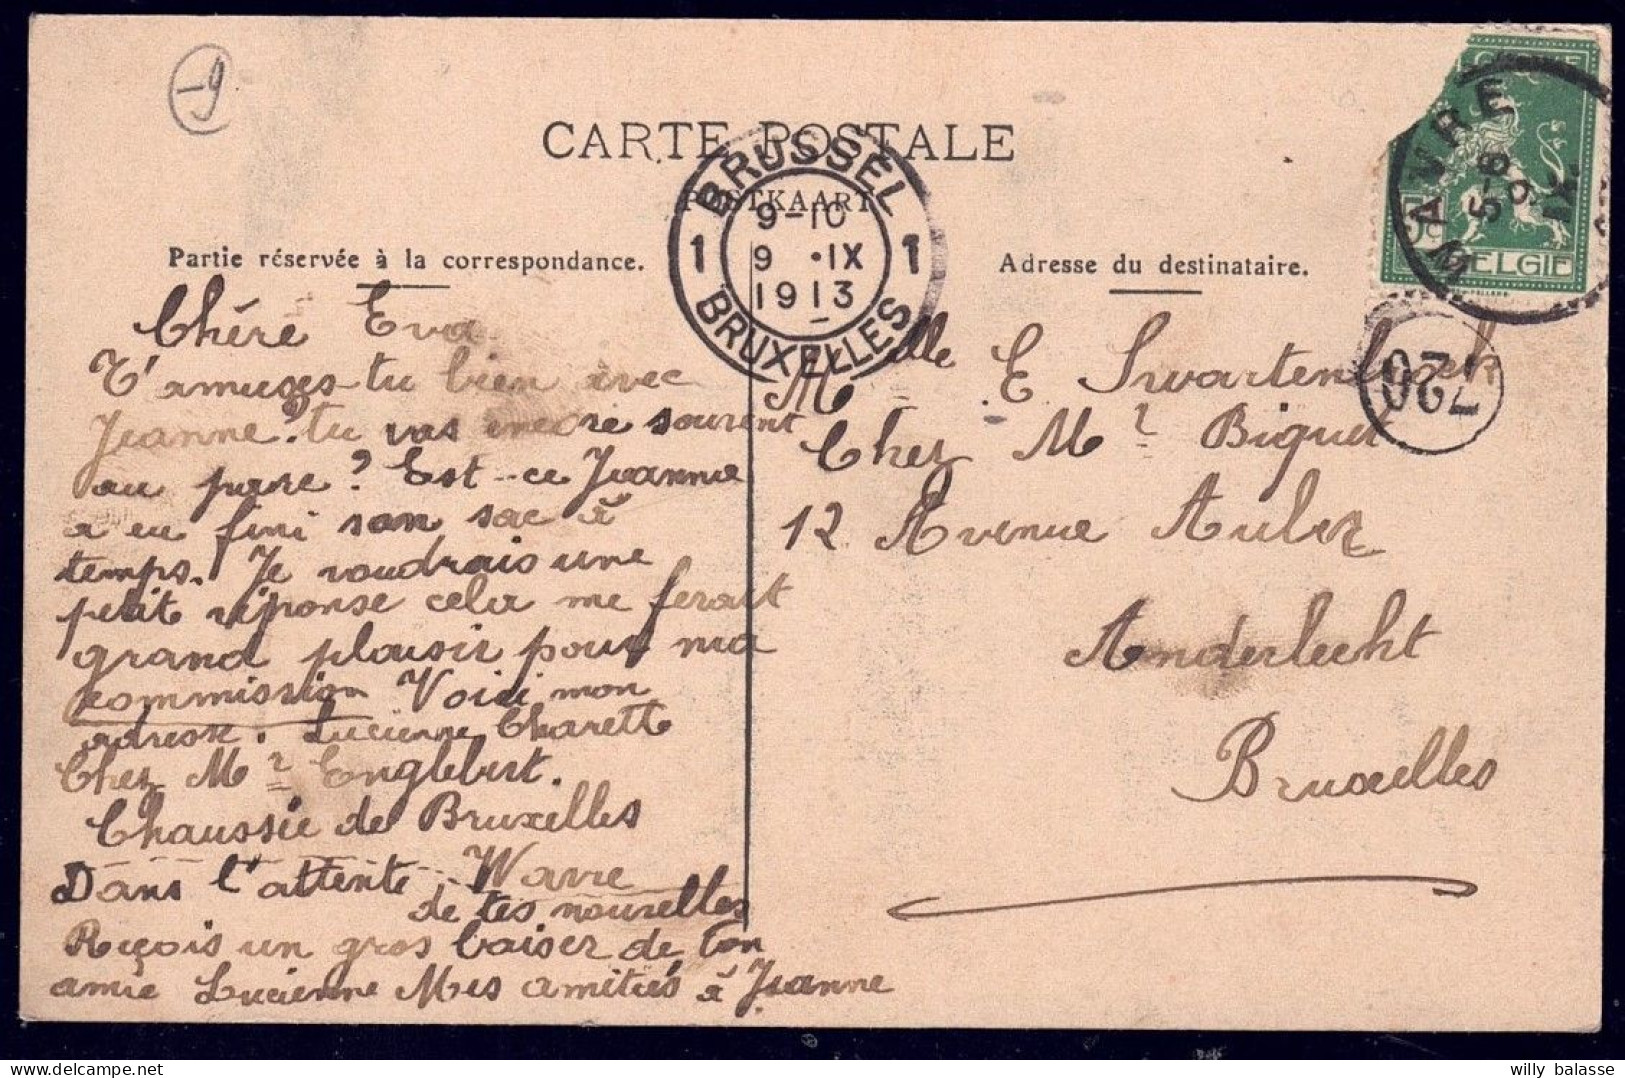 -9
CARTE POSTALE
POSTKAART
Partie réservée à la correspondance.
Adresse du destinataire.
BRUSSEL
9-10
1 9 · IX 1
1913
BRUXELLES
WAVRE
5-6
9
IX
BELGIE
720
Chére Eva
T'amuses-tu bien avec
Jeanne? tu vas encore souvent
au parc? Est-ce Jeanne
a eu fini son sac à
temps. Je voudrais une
petit réponse cela me ferait
grand plaisir pour ma
commission Voici mon
adresse. Lucienne Charette
Chez Mr Englebert.
Chaussée de Bruxelles
Wavre
Dans l'attente
de tes nouvelles
Reçois un gros baiser de ton
amie Lucienne Mes amitiés à Jeanne
Melle E. Swartenbroek
Chez Mr Biquet
12 Avenue Auber
Anderlecht
Bruxelles
willy balasse